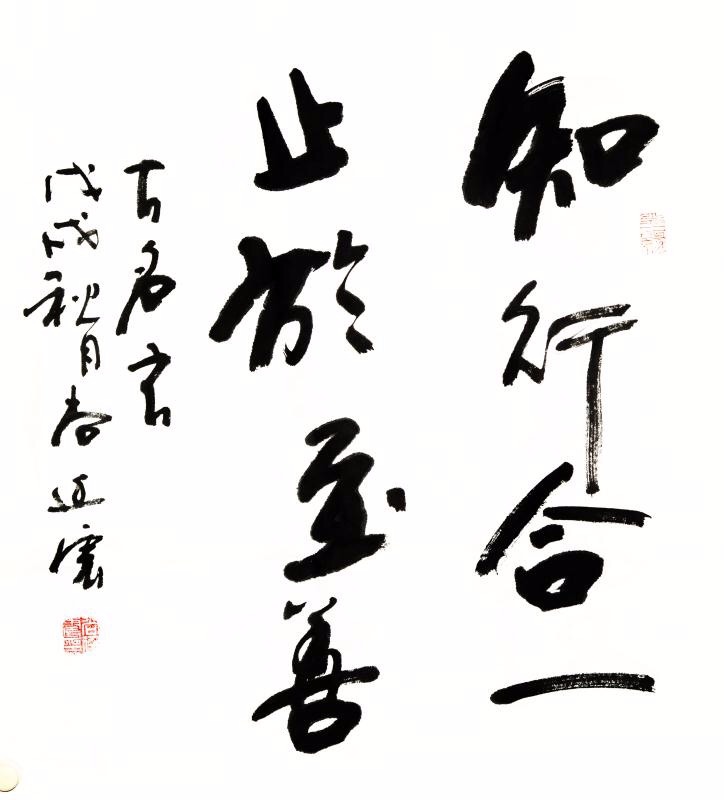 知行合一
止於至善
古名言
戊戌秋月尚廷震